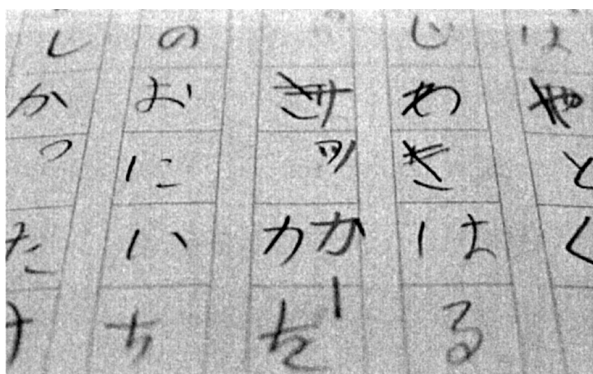 はやとく
じわきはる
サッカーを
のおにいち
しかったけ